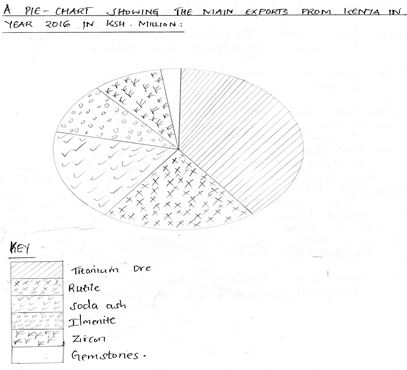 A PIE-CHART SHOWING THE MAIN EXPORTS FROM KENYA IN
YEAR 2016 IN KSH. MILLION:
KEY
Titanium Ore
Rutile
Soda ash
Ilmenite
Zircon
Gemstones.